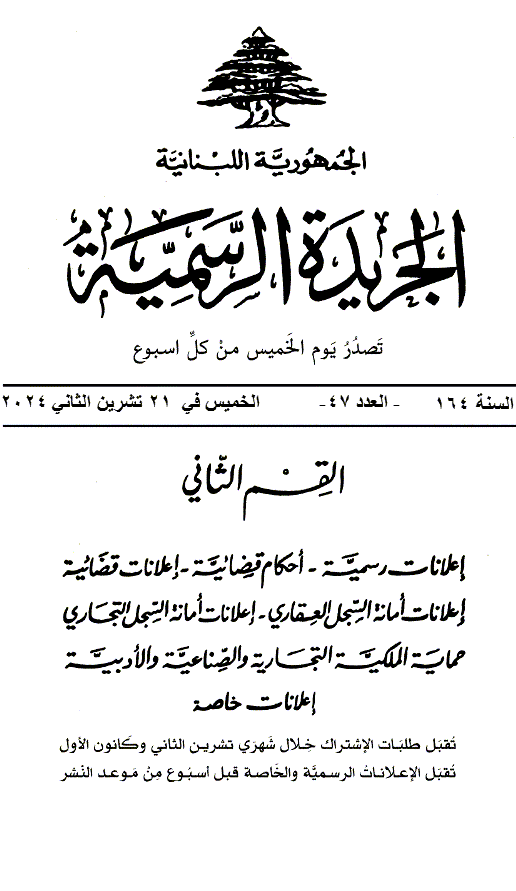 الجمهوريَّة اللبنانيَّة
الجريدة الرسميَّة
تَصدُرُ يَوم الخَميس منْ كلِّ اسبوع
السنة ١٦٤ - العدد ٤٧- الخميس في ٢١ تشرين الثاني ٢٠٢٤
القِسْم الثَّاني
إعلانات رسميَّة - أحكام قضائيَّة - إعلانات قضائية
إعلانات أمانة السِّجل العقاري - إعلانات أمانة السِّجل التجاري
حماية الملكيَّة التجارية والصِّناعيَّة والأدبيَّة
إعلانات خاصة
تُقبَل طلبَات الإشتراك خِلال شَهرَي تشرين الثاني وكَانون الأول
تُقبَل الإعلاناتُ الرسميَّة والخَاصة قبل أسبُوع مِنْ مَوعد النَشر